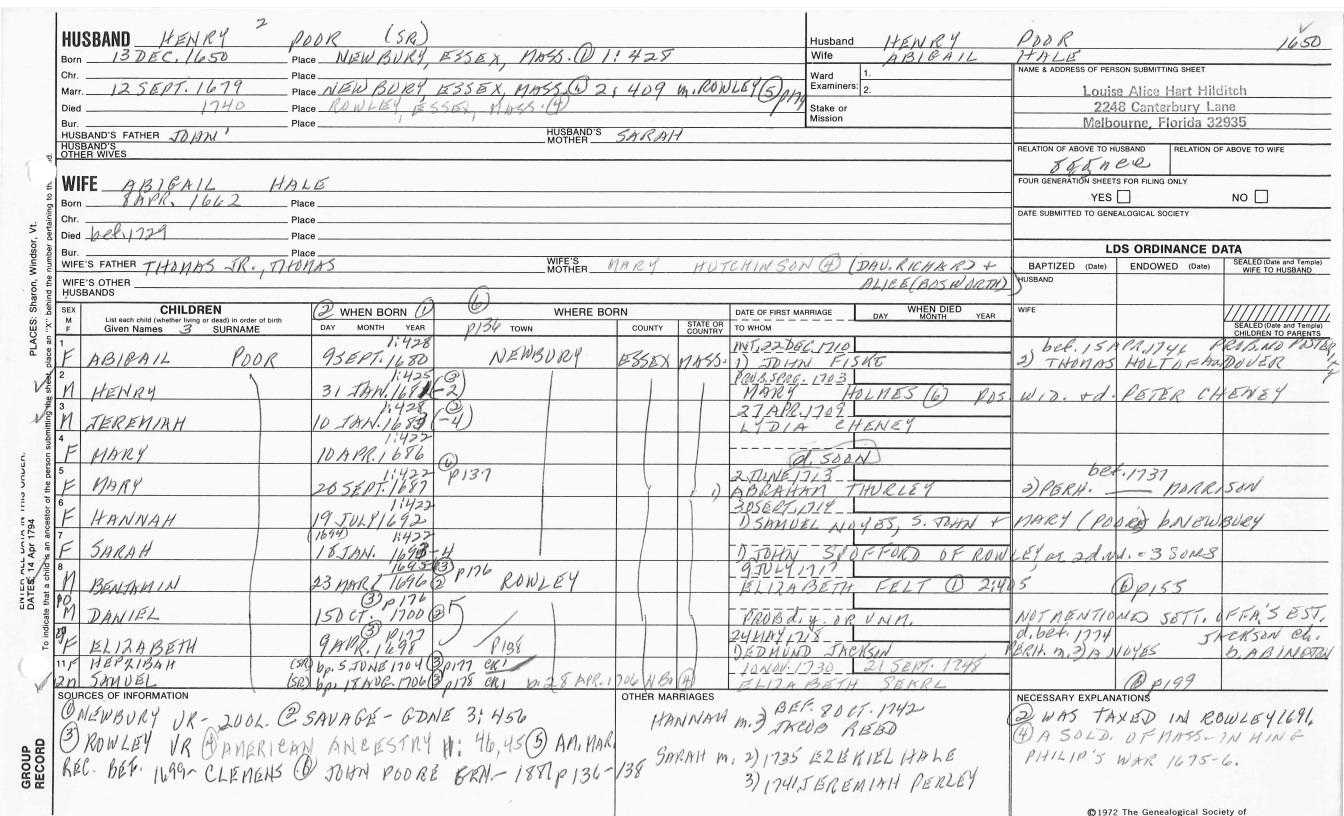 2
HUSBAND HENRY POOR (SR)
Born 13 DEC. 1650 Place NEWBURY, ESSEX, MASS. ① 1:428
Chr. Place
Marr. 12 SEPT. 1679 Place NEWBURY, ESSEX, MASS. ① 2:409 m. ROWLEY ⑤ p174
Died 1740 Place ROWLEY, ESSEX, MASS. ④
Bur. Place
HUSBAND'S FATHER JOHAN' HUSBAND'S MOTHER SARAH
HUSBAND'S OTHER WIVES
Husband HENRY POOR 1650
Wife ABIGAIL HALE
Ward Examiners: 1.
2.
Stake or Mission
NAME & ADDRESS OF PERSON SUBMITTING SHEET
Louise Alice Hart Hilditch
2248 Canterbury Lane
Melbourne, Florida 32935
RELATION OF ABOVE TO HUSBAND RELATION OF ABOVE TO WIFE
FOUR GENERATION SHEETS FOR FILING ONLY
YES NO
DATE SUBMITTED TO GENEALOGICAL SOCIETY
WIFE ABIGAIL HALE
Born 8 APR. 1662 Place
Chr. Place
Died bef. 1729 Place
Bur. Place
WIFE'S FATHER THOMAS JR., THOMAS WIFE'S MOTHER MARY HUTCHINSON ④ (DAU. RICHARD) +
WIFE'S OTHER HUSBANDS ALICE (BOSWORTH)
LDS ORDINANCE DATA
BAPTIZED (Date) ENDOWED (Date) SEALED (Date and Temple) WIFE TO HUSBAND
HUSBAND
WIFE
SEALED (Date and Temple) CHILDREN TO PARENTS
SEX M F CHILDREN List each child (whether living or dead) in order of birth Given Names 3 SURNAME
② WHEN BORN ① DAY MONTH YEAR
⑥ p136 WHERE BORN TOWN COUNTY STATE OR COUNTRY
DATE OF FIRST MARRIAGE TO WHOM
WHEN DIED DAY MONTH YEAR
1 F ABIGAIL POOR 1:428 9 SEPT. 1680 NEWBURY ESSEX MASS. INT. 22 DEC. 1710 1) JOHN FISKE bef. 15 APR. 1746 2) THOMAS HOLT OF ANDOVER
2 M HENRY 1:425 31 JAN. 1681 (-2) ② PROB. SPRG. 1703 MARY HOLMES ⑥ POS. WID. + d. PETER CHENEY
3 M JEREMIAH 1:428 10 JAN. 1683 (-4) ② 27 APR. 1709 LYDIA CHENEY
4 F MARY 1:422 10 APR. 1686 d. SOON
5 F MARY 1:422 20 SEPT. 1687 ⑥ p137 2 JUNE 1713 1) ABRAHAM THURLEY bef. 1737 2) PERH. ___ MORRISON
6 F HANNAH 1:422 19 JULY 1692 30 SEPT. 1714 1) SAMUEL NOYES, S. JOHN + MARY (POORE) b. NEWBURY
7 F SARAH (1694) 1:422 18 JAN. 1693-4 1) JOHN SPOFFORD OF ROWLEY, as 2d wd. = 3 SONS
8 M BENJAMIN 1695 ③ 23 MAR. 1696 ② p176 ROWLEY 9 JULY 1717 ELIZABETH FELT ① 2:405 ⑥ p155
M DANIEL ③ p176 15 OCT. 1700 ② PROB. d. y. OR UNM. NOT MENTIONED SETT. OF FA'S EST.
F ELIZABETH ③ p177 9 APR. 1698 p138 24 MAY 1718 1) EDMUND JACKSON d. bef. 1774 JACKSON ch. PERH. m. 2) A NOYES b. ABINGTON
11 F HEPZIBAH (SR) bp. 5 JUNE 1704 ③ p177 CR1
12 M SAMUEL (SR) bp. 18 AUG. 1706 ③ p178 CR1 b. 28 APR. 1706 ④ 10 NOV. 1730 21 SEPT. 1748 ELIZABETH SEARL ⑥ p199
SOURCES OF INFORMATION
① NEWBURY VR - 2 VOL. ② SAVAGE - GDNE 3:456
③ ROWLEY VR ④ AMERICAN ANCESTRY 11: 46,45 ⑤ AM. MAR.
REC. BEF. 1699 - CLEMENS ⑥ JOHN POORE GEN - 1881 p136-138
OTHER MARRIAGES
HANNAH m. 2) BEF. 8 OCT. 1742 JACOB REED
SARAH m. 2) 1735 EZEKIEL HALE
3) 1741 JEREMIAH PERLEY
NECESSARY EXPLANATIONS
② WAS TAXED IN ROWLEY 1691
④ A SOLD. OF MASS. IN KING
PHILIP'S WAR 1675-6.
©1972 The Genealogical Society of
GROUP RECORD
ENTER ALL DATA IN THIS ORDER:
DATES: 14 Apr 1794
PLACES: Sharon, Windsor, Vt.
To indicate that a child is an ancestor of the person submitting the sheet, place an "X" behind the number pertaining to th